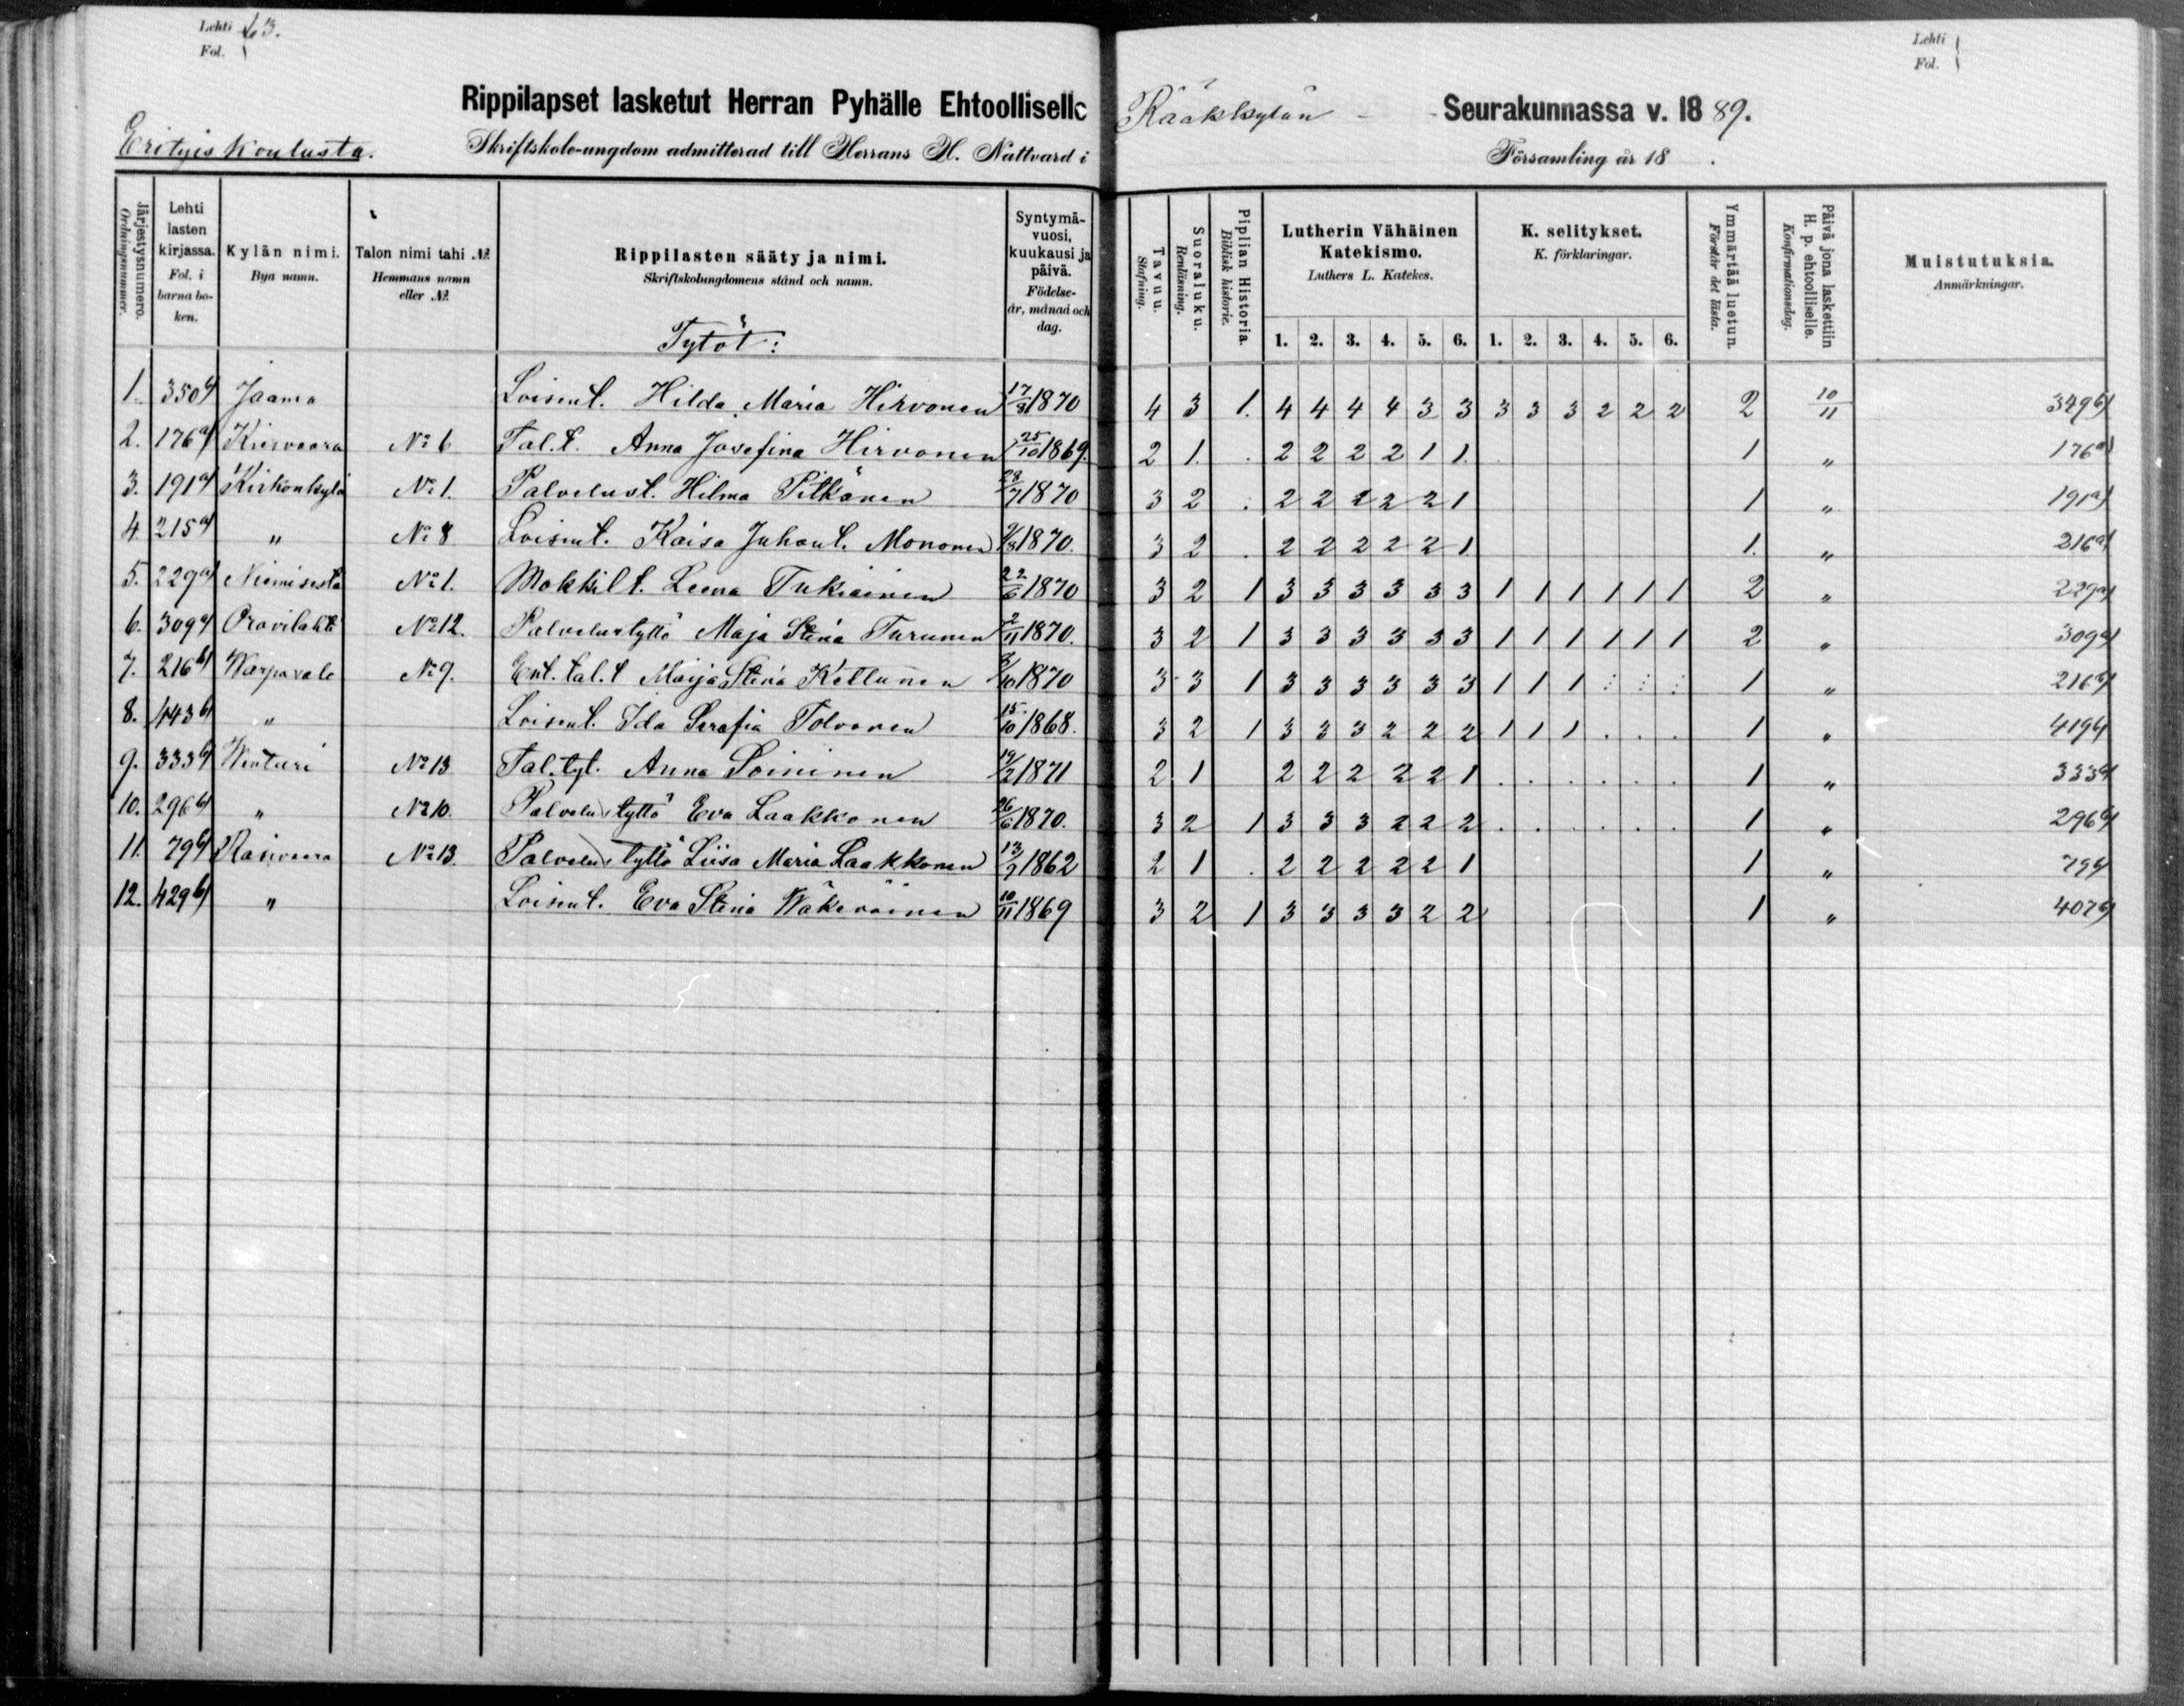 Lehti 63.
Fol.
Lehti
Fol.
Rippilapset lasketut Herran Pyhälle Ehtoolliselle Rääkkylän Seurakunnassa v. 1889.
Erityiskoulusta.
Skriftskole-ungdom admitterad till Herrans H. Nattvard i Församling år 18 .
Järjestysnumero. Ordningsnummer.
Lehti lasten kirjassa. Fol. i barnaboken.
Kylän nimi. Bya namn.
Talon nimi tahi №. Hemmans namn eller №.
Rippilasten sääty ja nimi. Skriftskolungdomens stånd och namn.
Syntymä-vuosi, kuukausi ja päivä. Födelse-år, månad och dag.
Tavuu. Stafning.
Suoraluku. Renläsning.
Piplian Historia. Biblisk historie.
Lutherin Vähäinen Katekismo. Luthers L. Katekes.
K. selitykset. K. förklaringar.
Ymmärtää luetun. Förstår det lästa.
Päivä jona laskettiin H. p. ehtoolliselle. Konfirmationsdag.
Muistutuksia. Anmärkningar.
1. 2. 3. 4. 5. 6. 1. 2. 3. 4. 5. 6.
Tytöt:
1. 350 Jaama Loisent. Hilda Maria Hirvonen 17/8 1870 4 3 1. 4 4 4 4 3 3 3 3 3 2 2 2 2 10/11 349b)
2. 176a) No 6 Tal.t. Anna Josefina Hirvonen 25/10 1869. 2 1. . 2 2 2 2 1 1. 1 " 176a)
3. 191a) Kirkonkylä No 1. Palvelust. Hilma Pitkänen 28/7 1870 3 2 : 2 2 2 2 2 1 1 " 191a)
4. 215a) " No 8 Loisent. Kaisa Juhant. Mononen 1870. 3 2 . 2 2 2 2 2 1 1. " 216a)
5. 229a) Niemisestä No 1. Mökkil t. Leena Tukiainen 22/6 1870 3 2 1 3 3 3 3 3 3 1 1 1 1 1 1 2 " 229a)
6. 309 Oravilahti No 12. Palvelustyttö Maja Stina Turunen 2/11 1870. 3 2 1 3 3 3 3 3 3 1 1 1 1 1 1 2 " 309
7. 216b) Warpasalo No 9. Ent. tal.t Maija Stina Kettunen 1870 3 3 1 3 3 3 3 3 3 1 1 1 : : : 1 " 216
8. 443b) " Loisent. Ida Serafia Tolvanen 15/10 1868. 3 2 1 3 3 3 2 2 2 1 1 1 . . . 1 " 419
9. 333 No 13 Tal.tyt. Anna Soininen 19/2 1871 2 1 2 2 2 2 2 1 . . . . . . 1 " 333
10. 296b) " No 10. Palvelustyttö Eva Laakkonen 26/6 1870. 3 2 1 3 3 3 2 2 2 . . . . . . 1 " 296
11. 79b) Rasivaara No 13. Palvelustyttö Liisa Maria Laakkonen 13/9 1862 2 1 . 2 2 2 2 2 1 1 " 79
12. 429b) " Loisent. Eva Stina Wäkeväinen 10/11 1869 3 2 1 3 3 3 3 2 2 1 " 407b)